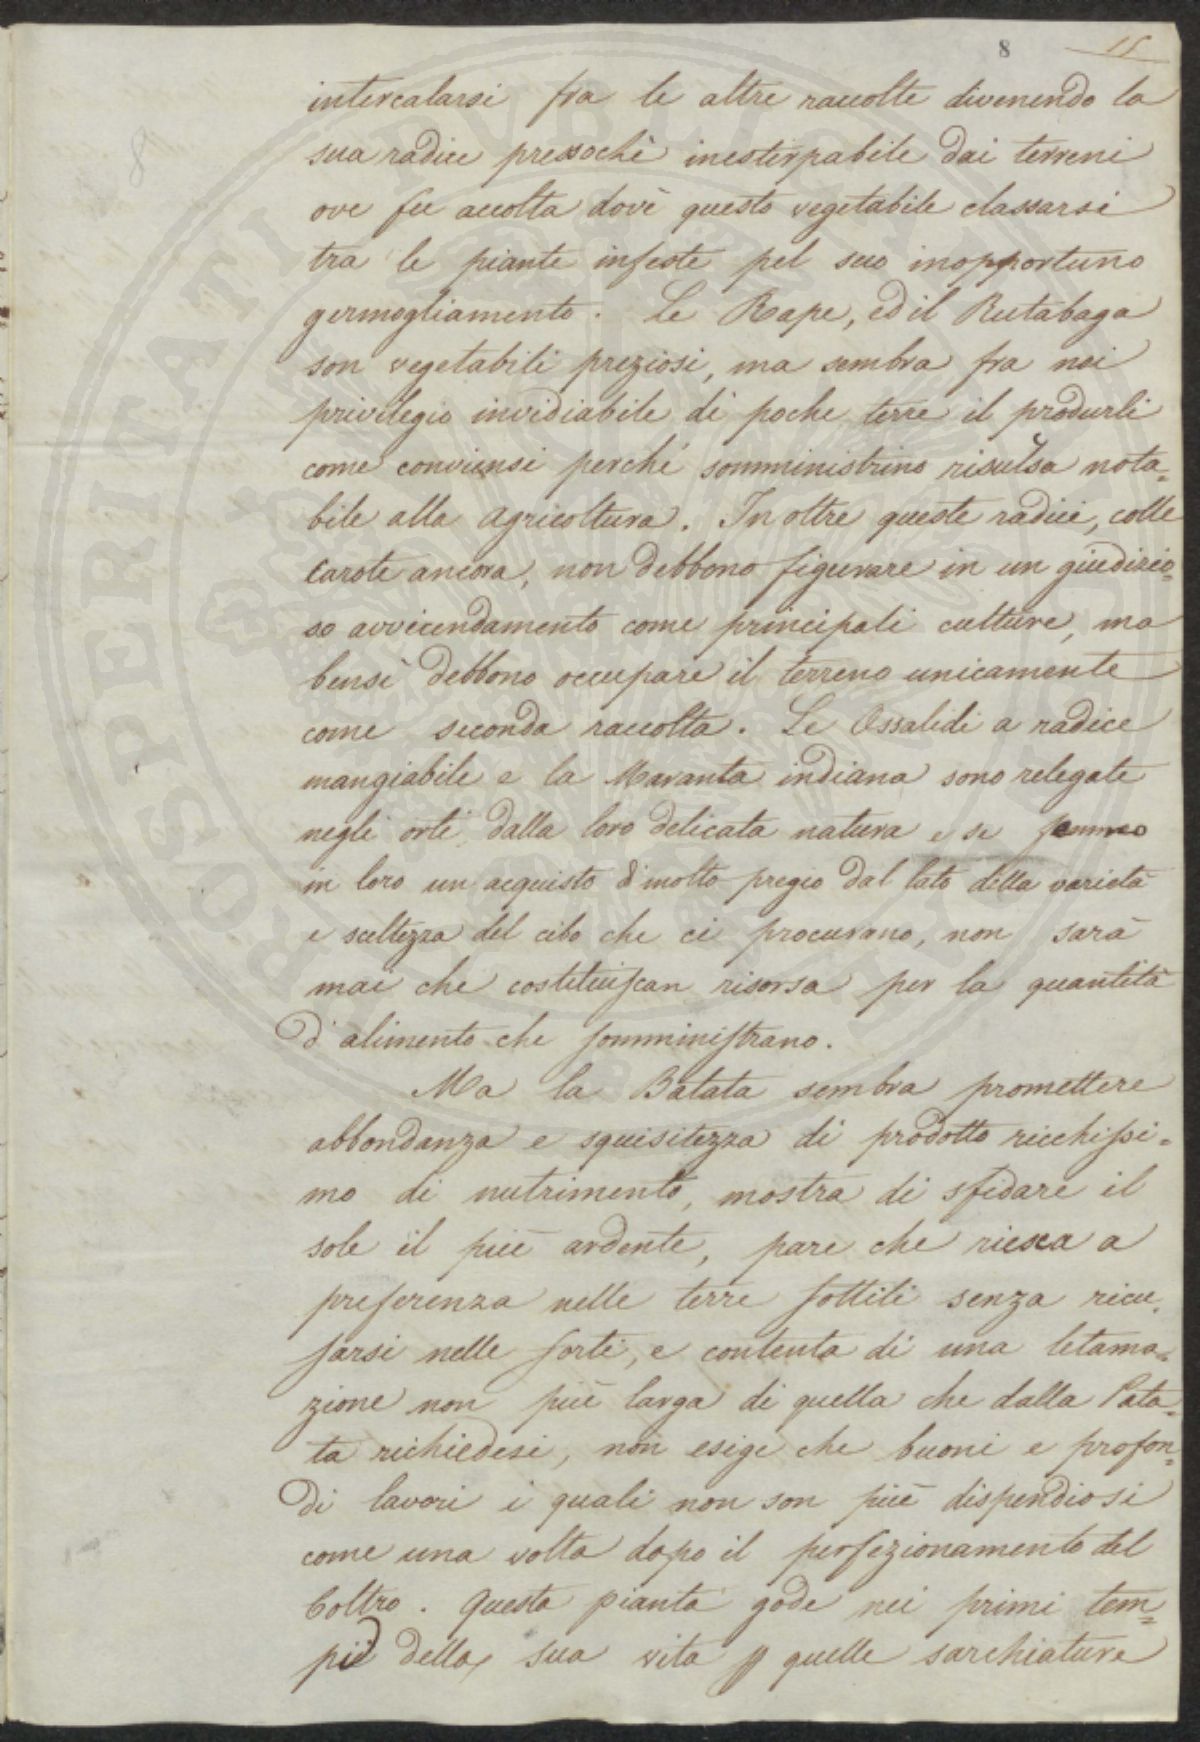 8 15
intercalarsi fra le altre raccolte divenendo la
sua radice pressochè inesterpabile dai terreni
ove fu accolta dovè questo vegetabile classarsi
tra le piante infeste pel suo inopportuno
germogliamento. Le Rape, ed il Rutabaga
son vegetabili preziosi, ma sembra fra noi
privilegio invidiabile di poche terre il produrli
come conviensi perchè somministrino risulsa nota=
bile alla agricoltura. Inoltre queste radici, colle
Carote ancora, non debbono figurare in un giudizio=
so avvicendamento come principali culture, ma
bensì debbono occupare il terreno unicamente
come seconda raccolta. Le Ossalidi a radice
mangiabile e la Maranta indiana sono relegate
negli orti dalla loro delicata natura e se femmo
in loro un acquisto d'molto pregio dal lato della varietà
e sceltezza del cibo che ci procurano, non sarà
mai che costituiscan risorsa per la quantità
d'alimento che somministrano.
Ma la Batata sembra promettere
abbondanza e squisitezza di prodotto ricchissi=
mo di nutrimento, mostra di sfidare il
sole il più ardente, pare che riesca a
preferenza nelle terre sottili senza ricu=
sarsi nelle forti, e contenta di una letama=
zione non più larga di quella che dalla Pata=
ta richiedesi, non esige che buoni e profon=
di lavori i quali non son più dispendiosi
come una volta dopo il perfezionamento del
Coltro. Questa pianta gode nei primi tem=
pi della sua vita quelle sarchiature
PROSPERITATI PVBLICAE
8